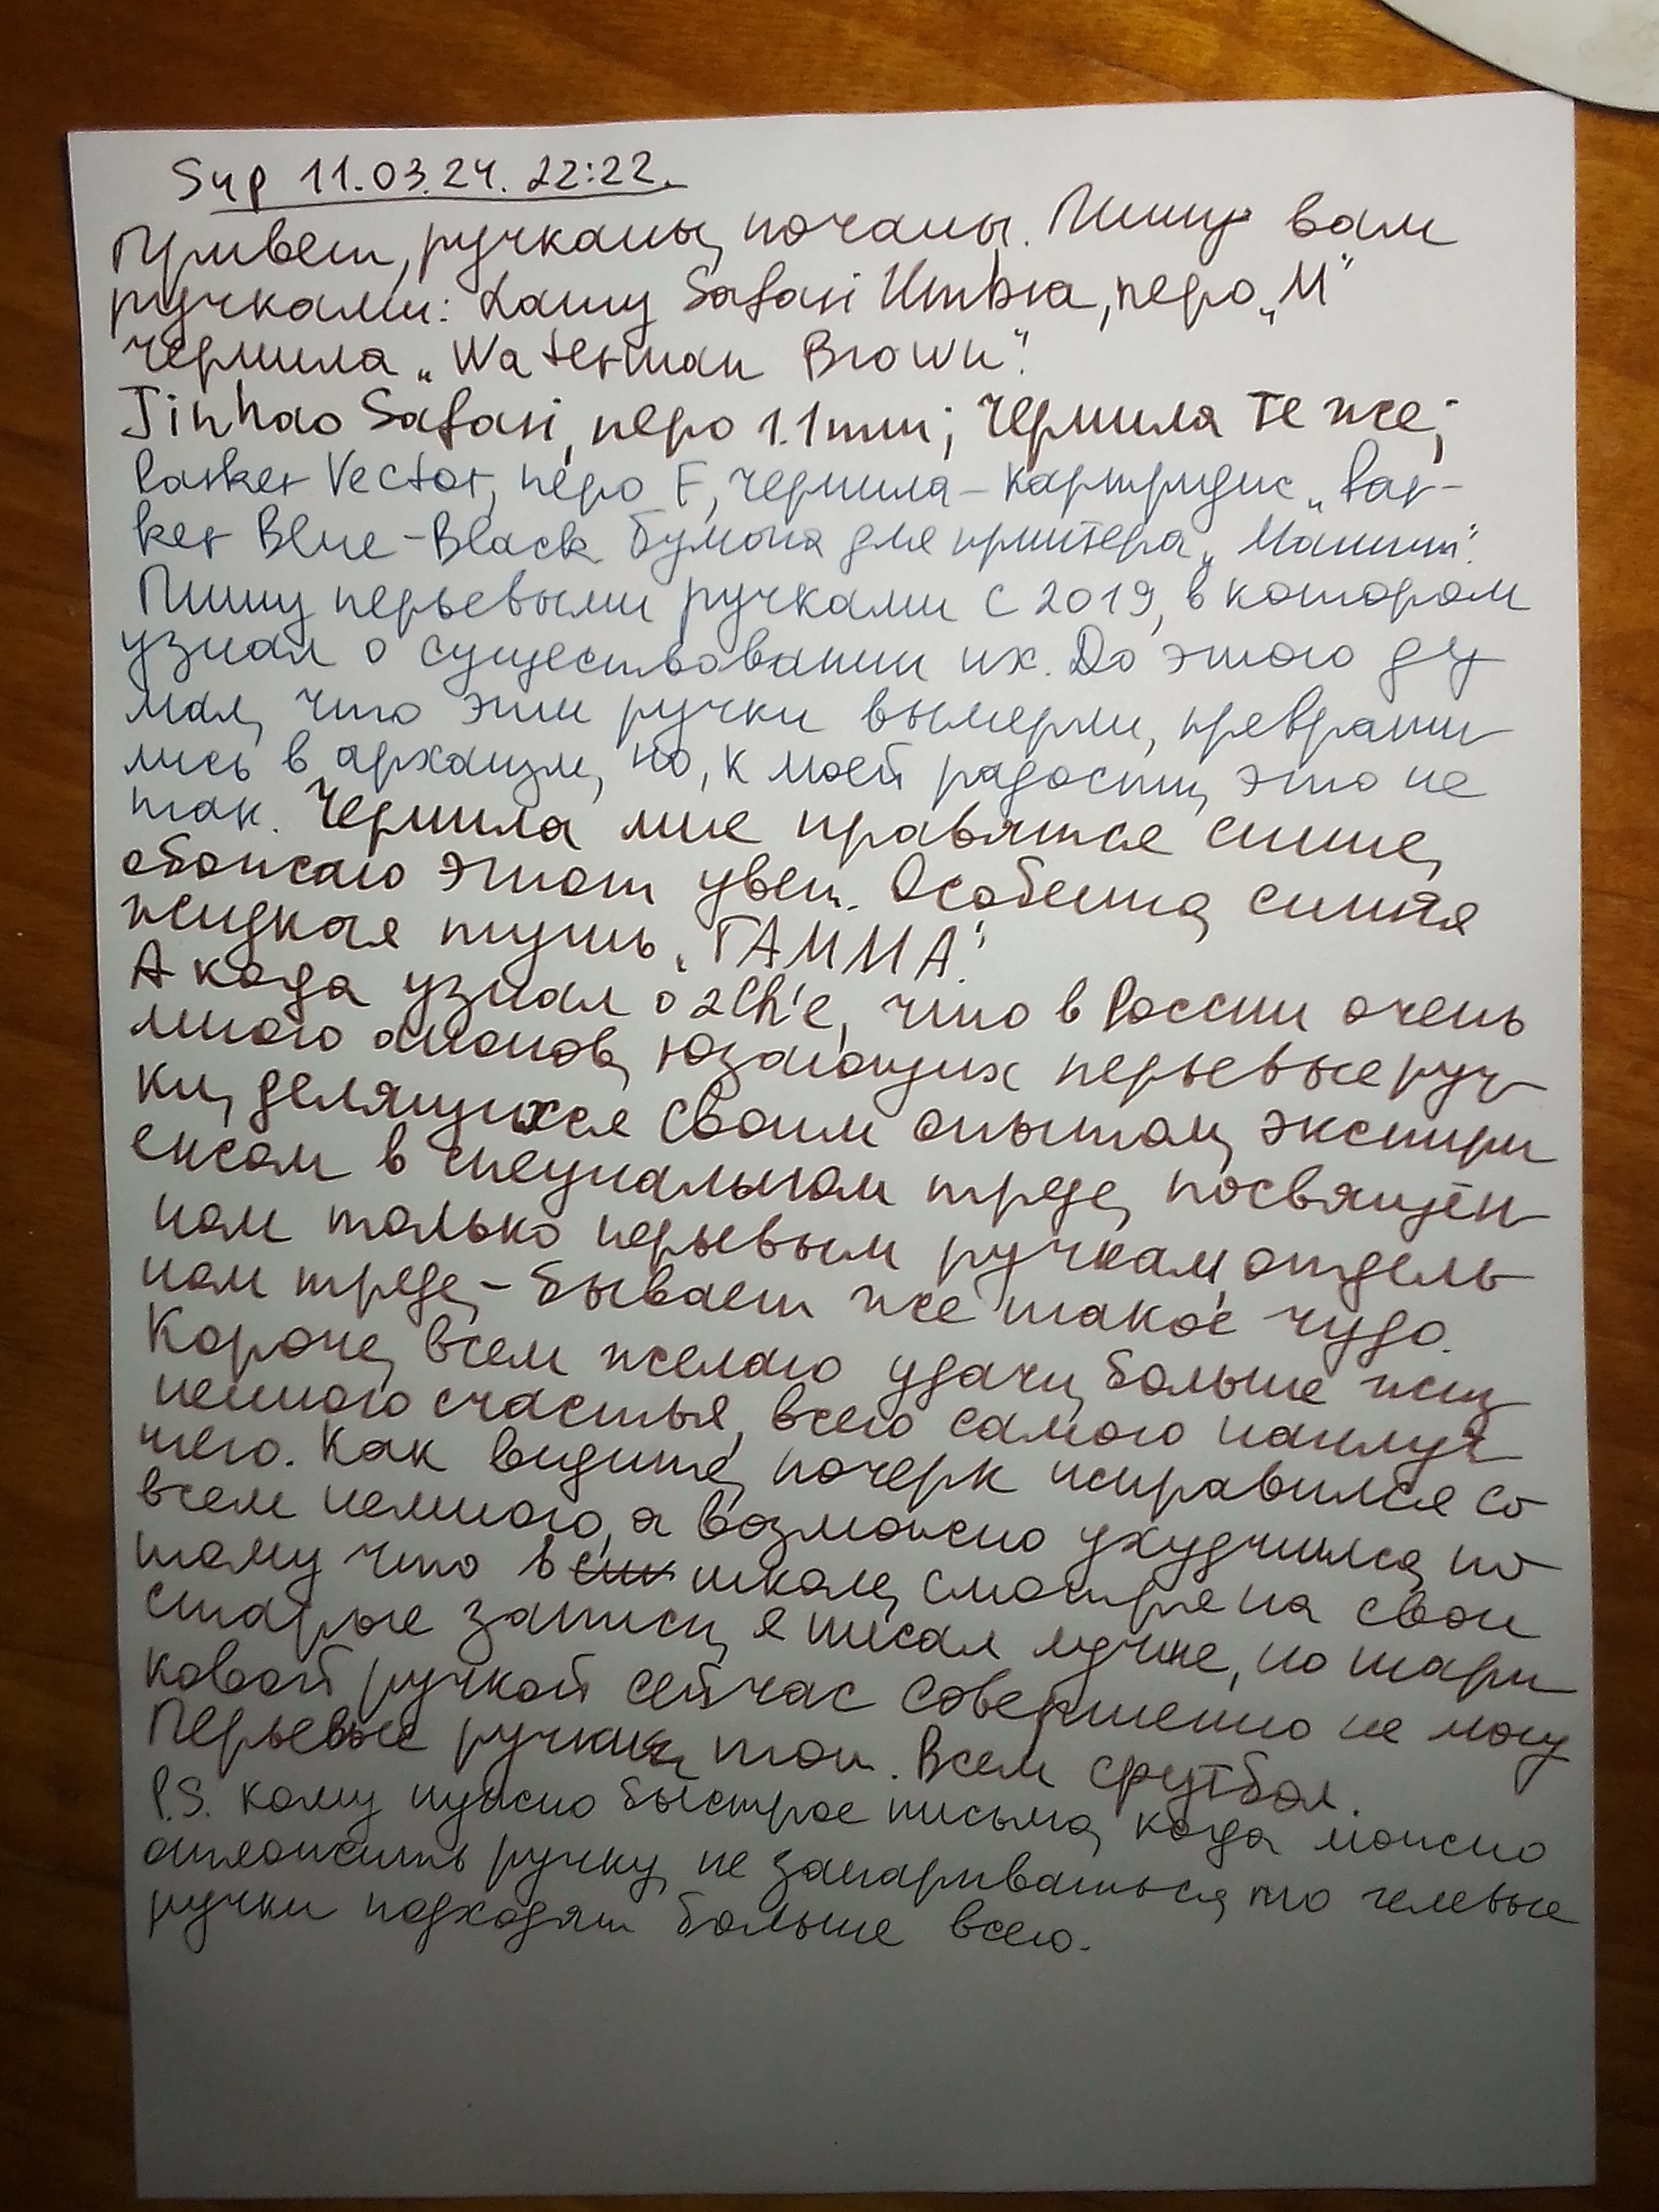 Sup 11.03.24. 22:22.
Привет, ручканы, почаны. Пишу вам
ручками: Lamy Safari Umbra, перо „М"
чернила „Waterman Brown".
Jinhao Safari, перо 1.1mm; Чернила те же;
Parker Vector, перо F, чернила – картридж „Par-
ker Blue-Black. Бумага для принтера „
Пишу перьевыми ручками с 2019, в котором
узнал о существовании их. До этого ду
мал, что эти ручки вымерли, преврати
лись в архаизм, но, к моей радости, это не
так. Чернила мне нравятся синие,
обожаю этот цвет. Особенно, синяя
жидкая тушь „ГАММА".
А когда узнал о 2ch'е, что в России очень
много анонов, юзающих перьевые руч
ки, делящихся своим опытом, экспири
енсом в специальном треде, посвящён
ном только перьевым ручкам, отдель
ном треде, – бывает же такое чудо.
Короче, всем желаю удачи, больше жиз
ненного счастья, всего самого наилуч
шего. Как видите, почерк исправился со
всем немного, а возможно ухудшился, по
тому что в школе, смотря на свои
старые записи, я писал лучше, но шари
ковой ручкой сейчас совершенно не могу
Перьевые ручки топ. Всем футбол.
P.S. кому нужно быстрое письмо, когда можно
отложить ручку, не запариваться, то гелевые
ручки подходят больше всего.